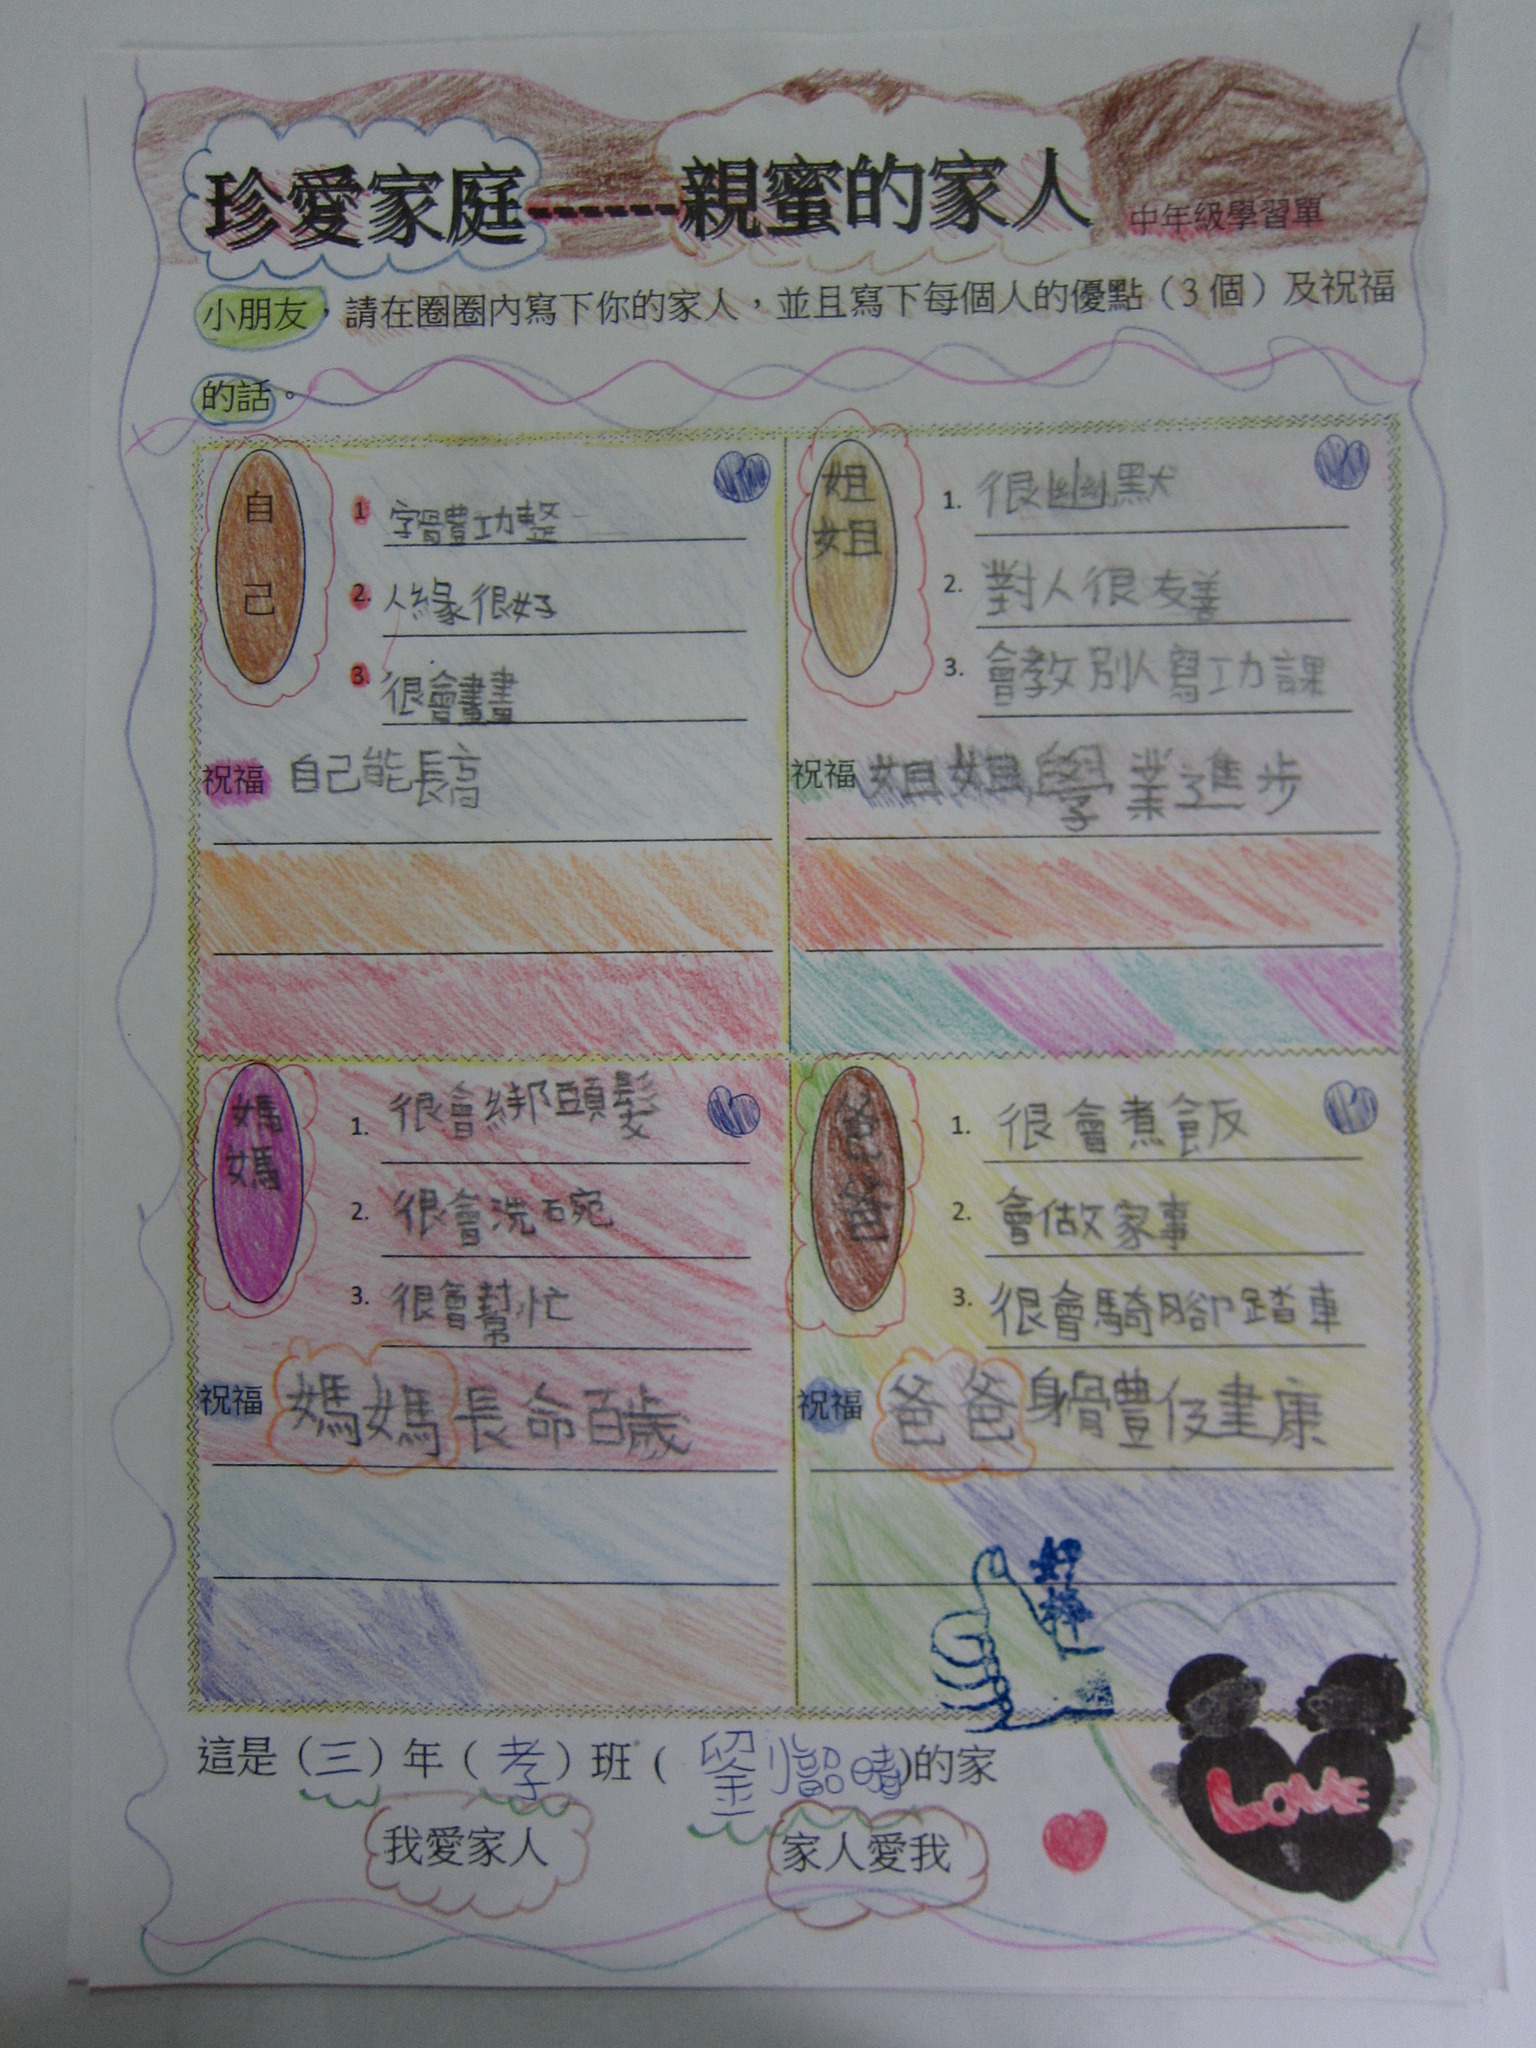 珍愛家庭------親蜜的家人 中年級學習單
小朋友，請在圈圈內寫下你的家人，並且寫下每個人的優點（3個）及祝福
的話。
自己
1. 字體功整
2. 人緣很好
3. 很會畫畫
祝福 自己能長高
姐姐
1. 很幽默
2. 對人很友善
3. 會教別人寫功課
祝福 姐姐學業進步
媽媽
1. 很會綁頭髮
2. 很會洗碗
3. 很會幫忙
祝福 媽媽長命百歲
爸爸
1. 很會煮飯
2. 會做家事
3. 很會騎腳踏車
祝福 爸爸身體健康
好棒
這是（三）年（孝）班（劉韶晴)的家
我愛家人 家人愛我
LOVE